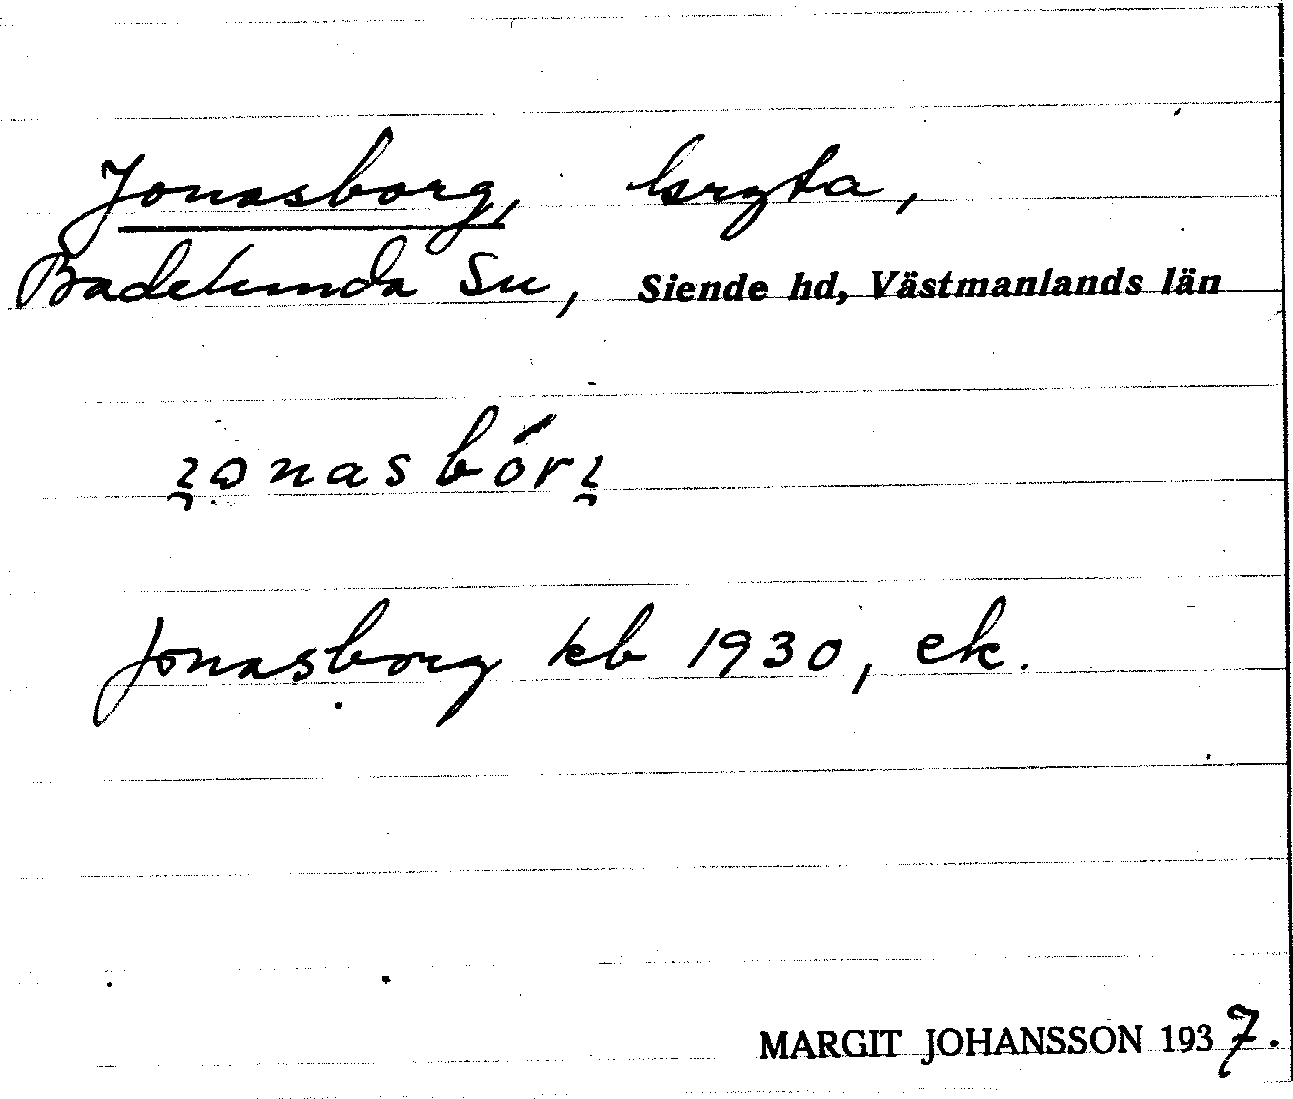 Jonasborg,
Badelunda Sn, Siende hd, Västmanlands län
jonasbórj
Jonasborg kb 1930, ek.
MARGIT JOHANSSON 1937.